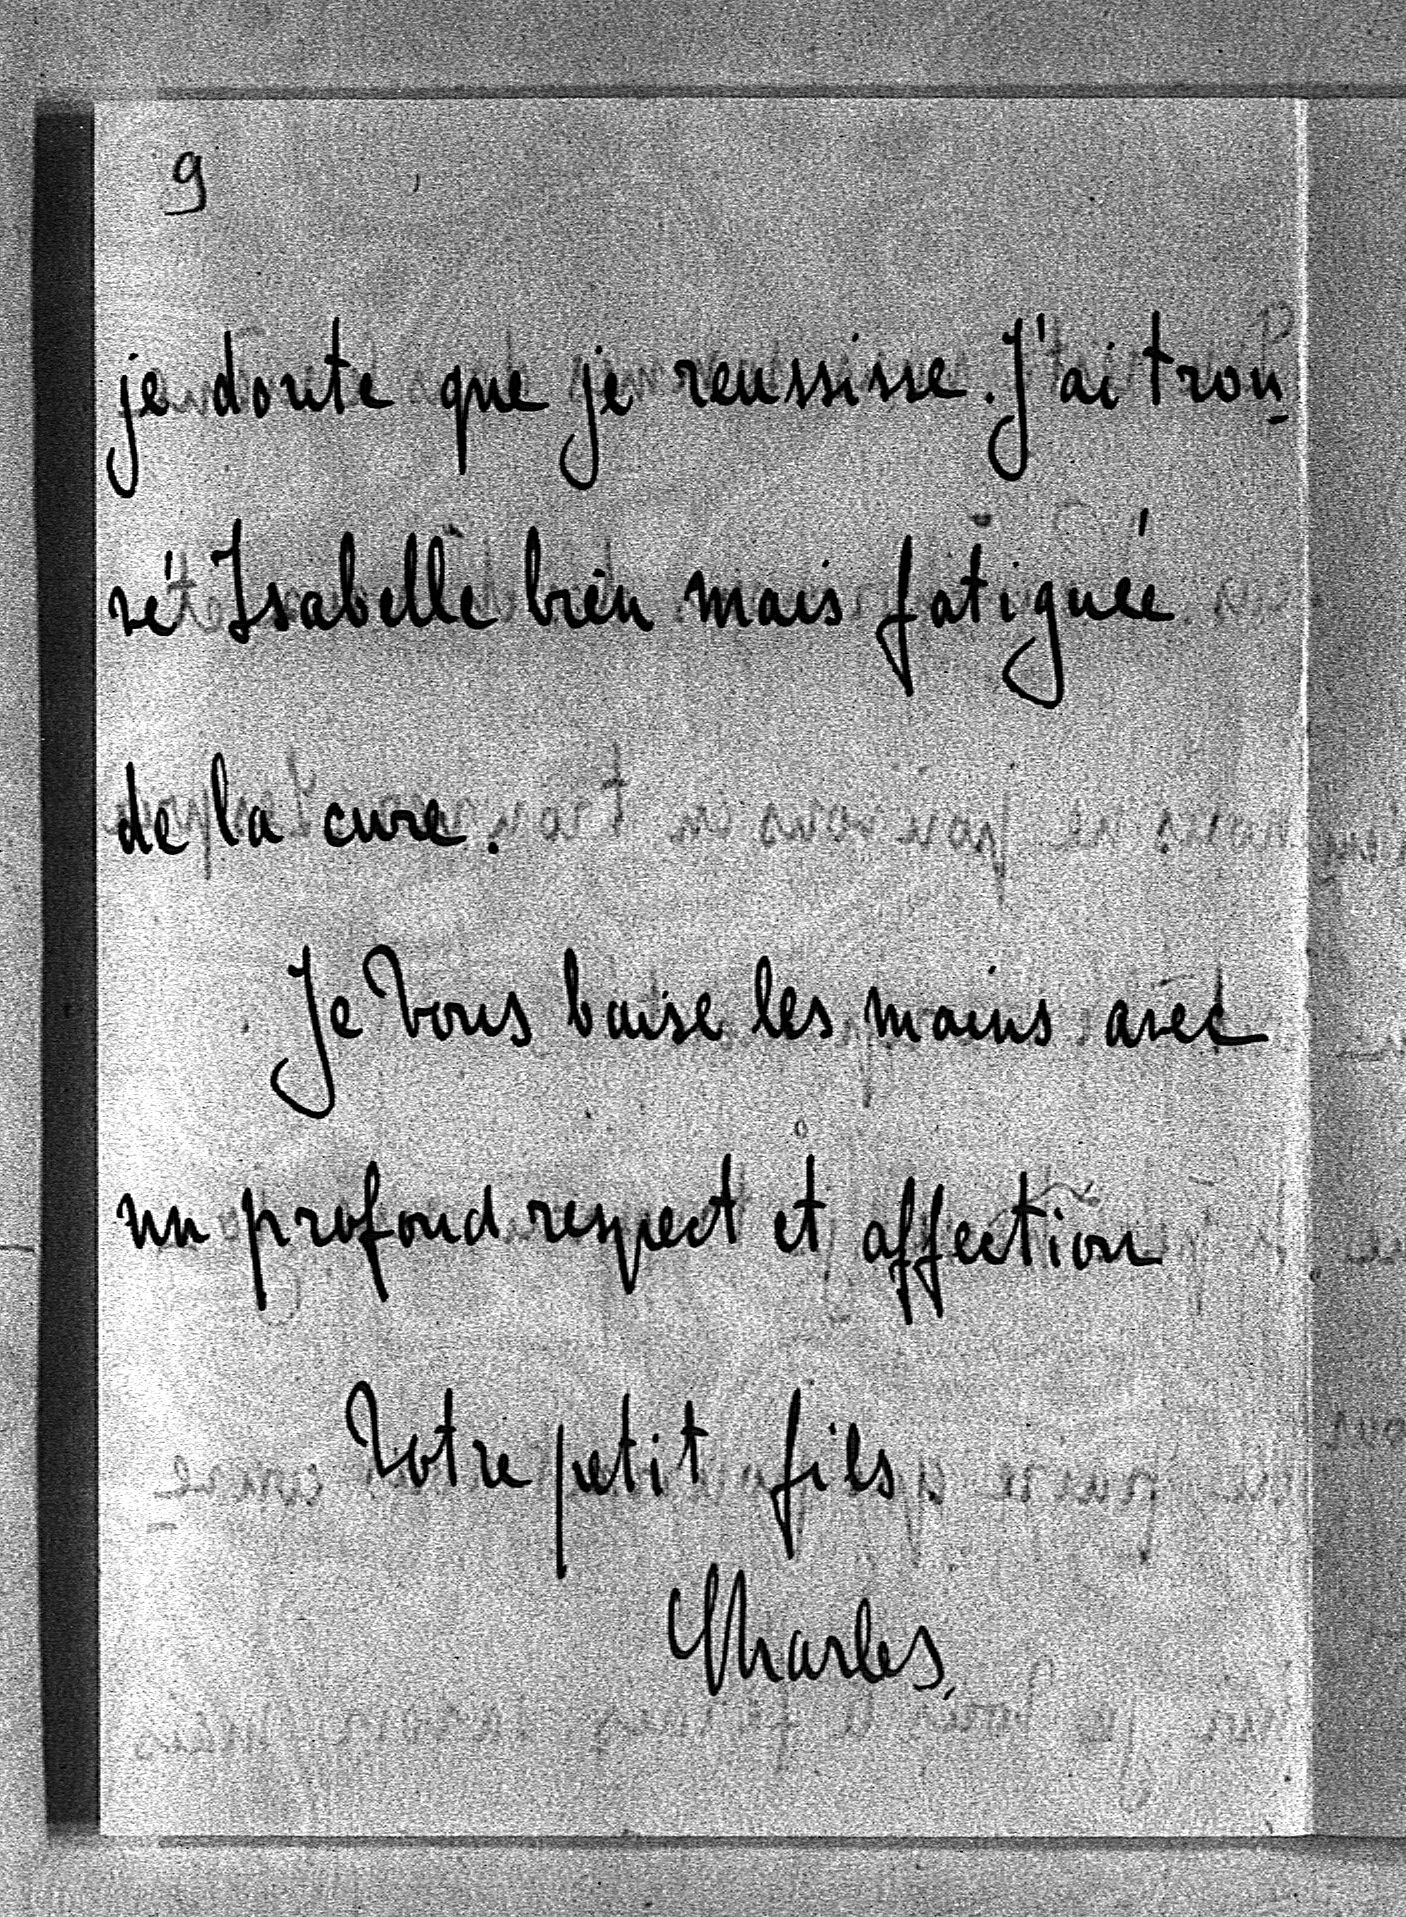 9
je doute que je reussisse. J'ai trou-
vé Isabelle bien mais fatiguée
de la cure.
Je vous baise les mains avec
un profond respect et affection
Votre petit fils
Charles,